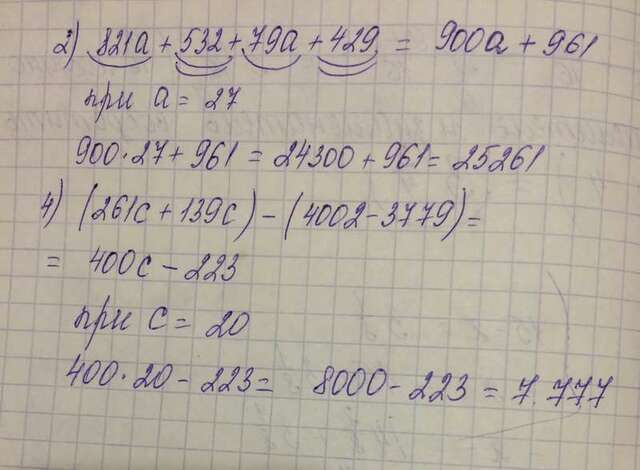 2) 821a + 532 + 79a + 429 = 900a + 961
при a = 27
900·27 + 961 = 24300 + 961 = 25261
4) (261c + 139c) - (4002 - 3779) =
= 400c - 223
при c = 20
400·20 - 223 = 8000 - 223 = 7.777